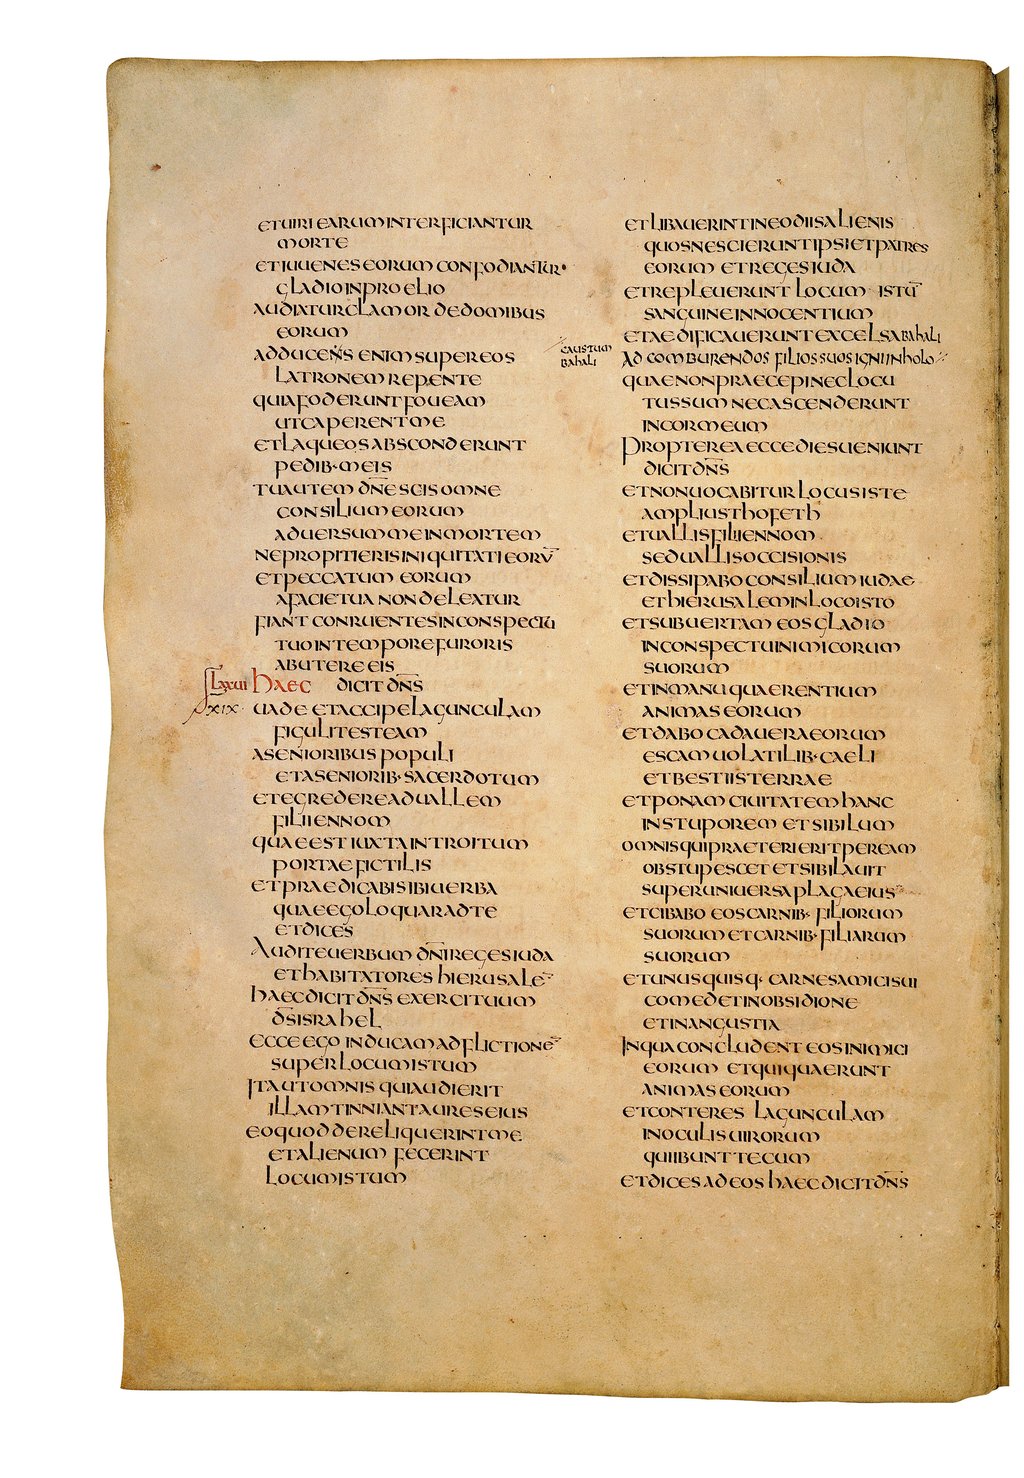 ETUIRI EARUM INTERFICIANTUR
MORTE
ETIUUENES EORUM CONFODIANTUR·
GLADIO IN PROELIO
AUDIATUR CLAMOR DE DOMIBUS
EORUM
ADDUCENS ENIM SUPER EOS
LATRONEM REPENTE
QUIA FODERUNT FOUEAM
UT CAPERENT ME
ET LAQUEOS ABSCONDERUNT
PEDIB· MEIS
TU AUTEM DN̅E SCIS OMNE
CONSILIUM EORUM
ADUERSUM ME IN MORTEM
NE PROPITIERIS INIQUITATI EORU̅
ET PECCATUM EORUM
A FACIE TUA NON DELEATUR
FIANT CONRUENTES IN CONSPECTU
TUO IN TEMPORE FURORIS
ABUTERE EIS
LXXUII HAEC DICIT DN̅S
XIX· UADE ET ACCIPE LAGUNCULAM
FIGULI TESTEAM
A SENIORIBUS POPULI
ET A SENIORIB· SACERDOTUM
ET EGREDERE AD UALLEM
FILII ENNOM
QUAE EST IUXTA INTROITUM
PORTAE FICTILIS
ET PRAEDICABIS IBI UERBA
QUAE EGO LOQUAR AD TE
ET DICES
AUDITE UERBUM DN̅I REGES IUDA
ET HABITATORES HIERUSALE̅
HAEC DICIT DN̅S EXERCITUUM
DS ISRAHEL
ECCE EGO INDUCAM ADFLICTIONE̅
SUPER LOCUM ISTUM
ITA UT OMNIS QUI AUDIERIT
ILLAM TINNIANT AURES EIUS
EO QUOD DERELIQUERINT ME
ET ALIENUM FECERINT
LOCUM ISTUM
ET LIBAUERINT IN EO DIIS ALIENIS
QUOS NESCIERUNT IPSI ET PATRES
EORUM ET REGES IUDA
ET REPLEUERUNT LOCUM ISTU̅
SANGUINE INNOCENTIUM
ET AEDIFICAUERUNT EXCELSA BAHALI
AD COMBURENDOS FILIOS SUOS IGNI IN HOLO
CAUSTUM
BAHALI
QUAE NON PRAECEPI NEC LOCU
TUS SUM NEC ASCENDERUNT
IN COR MEUM
PROPTEREA ECCE DIES UENIUNT
DICIT DN̅S
ET NON UOCABITUR LOCUS ISTE
AMPLIUS THOFETH
ET UALLIS FILII ENNOM
SED UALLIS OCCISIONIS
ET DISSIPABO CONSILIUM IUDAE
ET HIERUSALEM IN LOCO ISTO
ET SUBUERTAM EOS GLADIO
IN CONSPECTU INIMICORUM
SUORUM
ET IN MANU QUAERENTIUM
ANIMAS EORUM
ET DABO CADAUERA EORUM
ESCAM UOLATILIB· CAELI
ET BESTIIS TERRAE
ET PONAM CIUITATEM HANC
IN STUPOREM ET SIBILUM
OMNIS QUI PRAETERIERIT PER EAM
OBSTUPESCET ET SIBILAUIT
SUPER UNIUERSA PLAGA EIUS
ET CIBABO EOS CARNIB· FILIORUM
SUORUM ET CARNIB· FILIARUM
SUORUM
ET UNUSQUISQ· CARNES AMICI SUI
COMEDET IN OBSIDIONE
ET IN ANGUSTIA
IN QUA CONCLUDENT EOS INIMICI
EORUM ET QUI QUAERUNT
ANIMAS EORUM
ET CONTERES LAGUNCULAM
IN OCULIS UIRORUM
QUI IBUNT TECUM
ET DICES AD EOS HAEC DICIT DN̅S